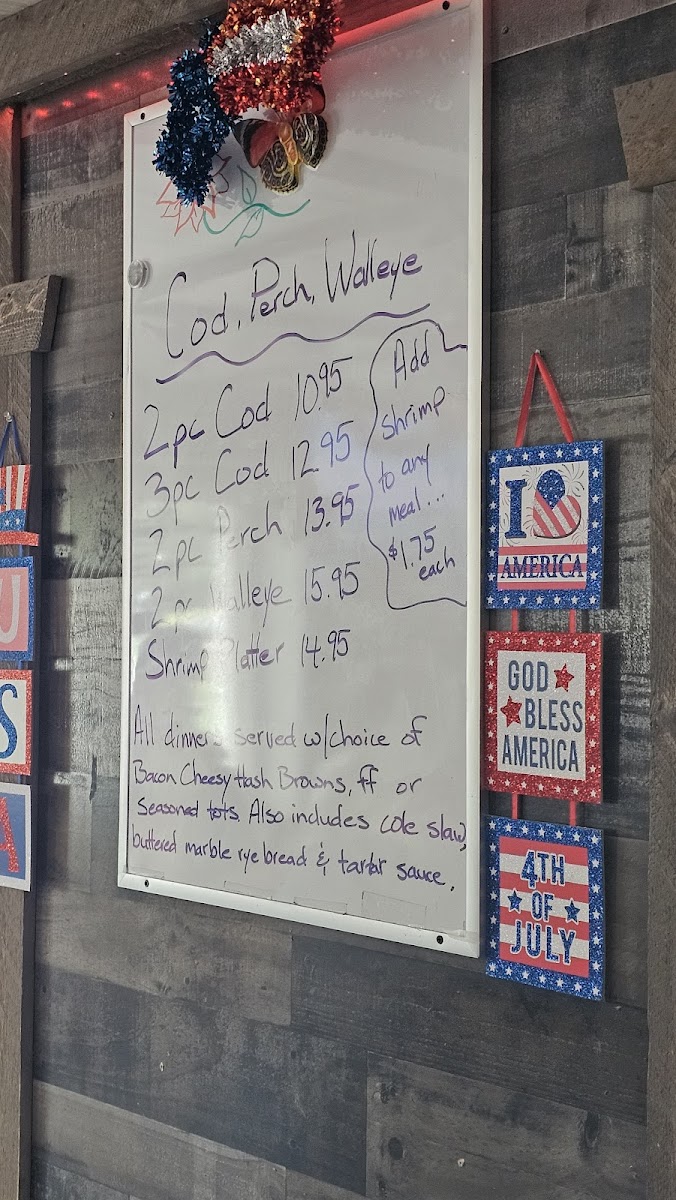 Cod, Perch, Walleye
2pc Cod 10.95
3pc Cod 12.95
2pc Perch 13.95
2pc Walleye 15.95
Shrimp Platter 14.95
Add
shrimp
to any
meal...
$1.75
each
All dinners served w/choice of
Bacon Cheesy Hash Browns, ff or
Seasoned tots. Also includes cole slaw,
buttered marble rye bread & tartar sauce.
I
AMERICA
GOD
BLESS
AMERICA
4TH
OF
JULY
U
S
A